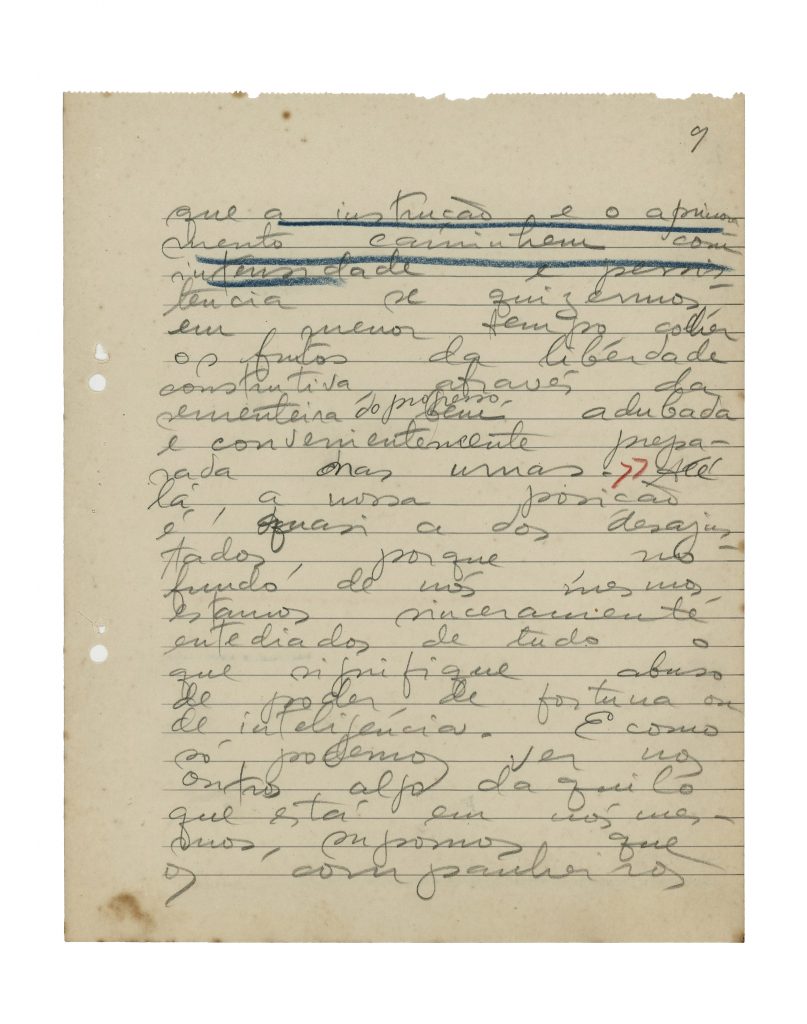 9
que a instrução e o aprimora
mento caminhem com
intensidade e persis-
tência se quizermos,
em menor tempo colher
os frutos da liberdade
construtiva através da
sementeira do progresso, bem adubada
e convenientemente prepa-
rada nas urnas. >> Até
lá, a nossa posição
é quasi a dos desajus-
tados, porque no
fundo de nós mesmos
estamos sinceramente
entediados de tudo o
que signifique abuso
de poder de fortuna ou
de inteligência. E como
só podemos ver no
outro algo daquilo
que está em nós mes-
mos, supomos que
os companheiros